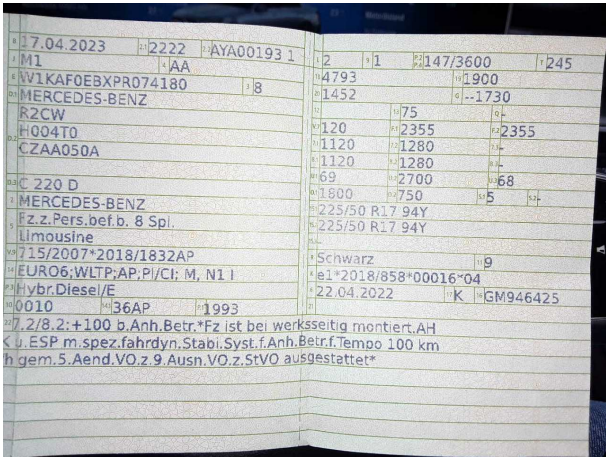 17.04.2023 2222 AYA00193 1
M1 AA
W1KAF0EBXPR074180 8
MERCEDES-BENZ
R2CW
H004T0
CZAA050A
C 220 D
MERCEDES-BENZ
Fz.z.Pers.bef.b. 8 Spl.
Limousine
715/2007*2018/1832AP
EURO6;WLTP;AP;PI/CI; M, N1 I
Hybr.Diesel/E
0010 36AP 1993
2 1 147/3600 245
4793 1900
1452 --1730
75 -
120 2355 2355
1120 1280 -
1120 1280 -
69 2700 68
1800 750 5 -
225/50 R17 94Y
225/50 R17 94Y
-
Schwarz 9
e1*2018/858*00016*04
22.04.2022 K GM946425
7.2/8.2:+100 b.Anh.Betr.*Fz ist bei werksseitig montiert.AH
K u.ESP m.spez.fahrdyn.Stabi.Syst.f.Anh.Betr.f.Tempo 100 km
/h gem.5.Aend.VO.z.9.Ausn.VO.z.StVO ausgestattet*